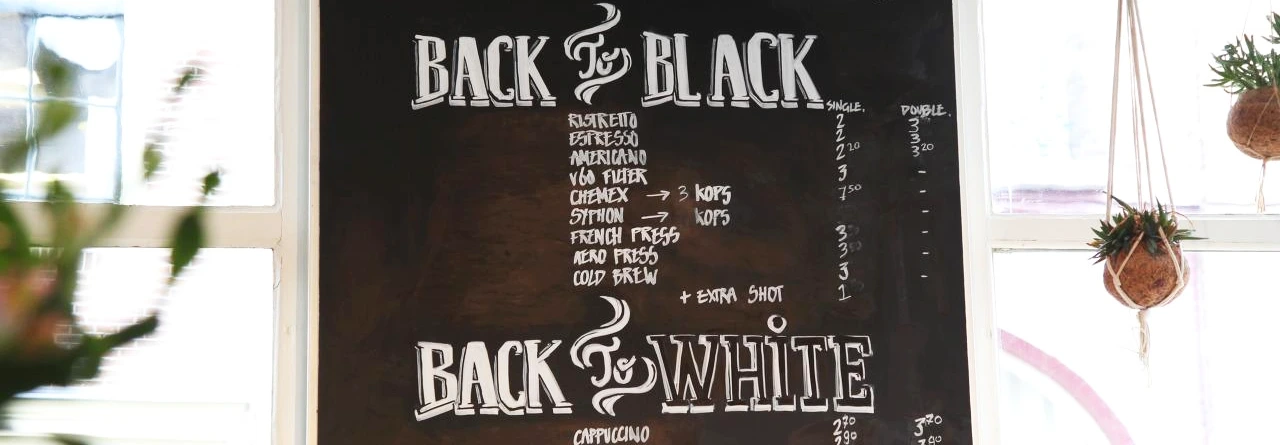 BACK To BLACK
SINGLE. DOUBLE.
RISTRETTO 2 3
ESPRESSO 2 3
AMERICANO 2 20 3 20
V60 FILTER 3 -
CHEMEX → 3 KOPS 7 50 -
SYPHON → KOPS -
FRENCH PRESS 3 -
AERO PRESS 3 -
COLD BREW 3 -
+ EXTRA SHOT 1
BACK To WHITE
CAPPUCCINO 2 70 3 70
2 90 3 90